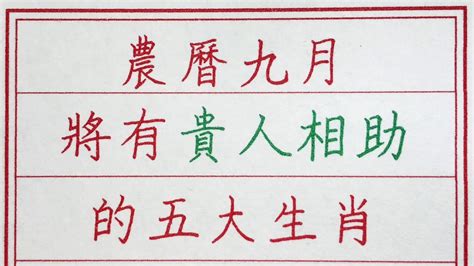 農曆九月
將有貴人相助
的五大生肖